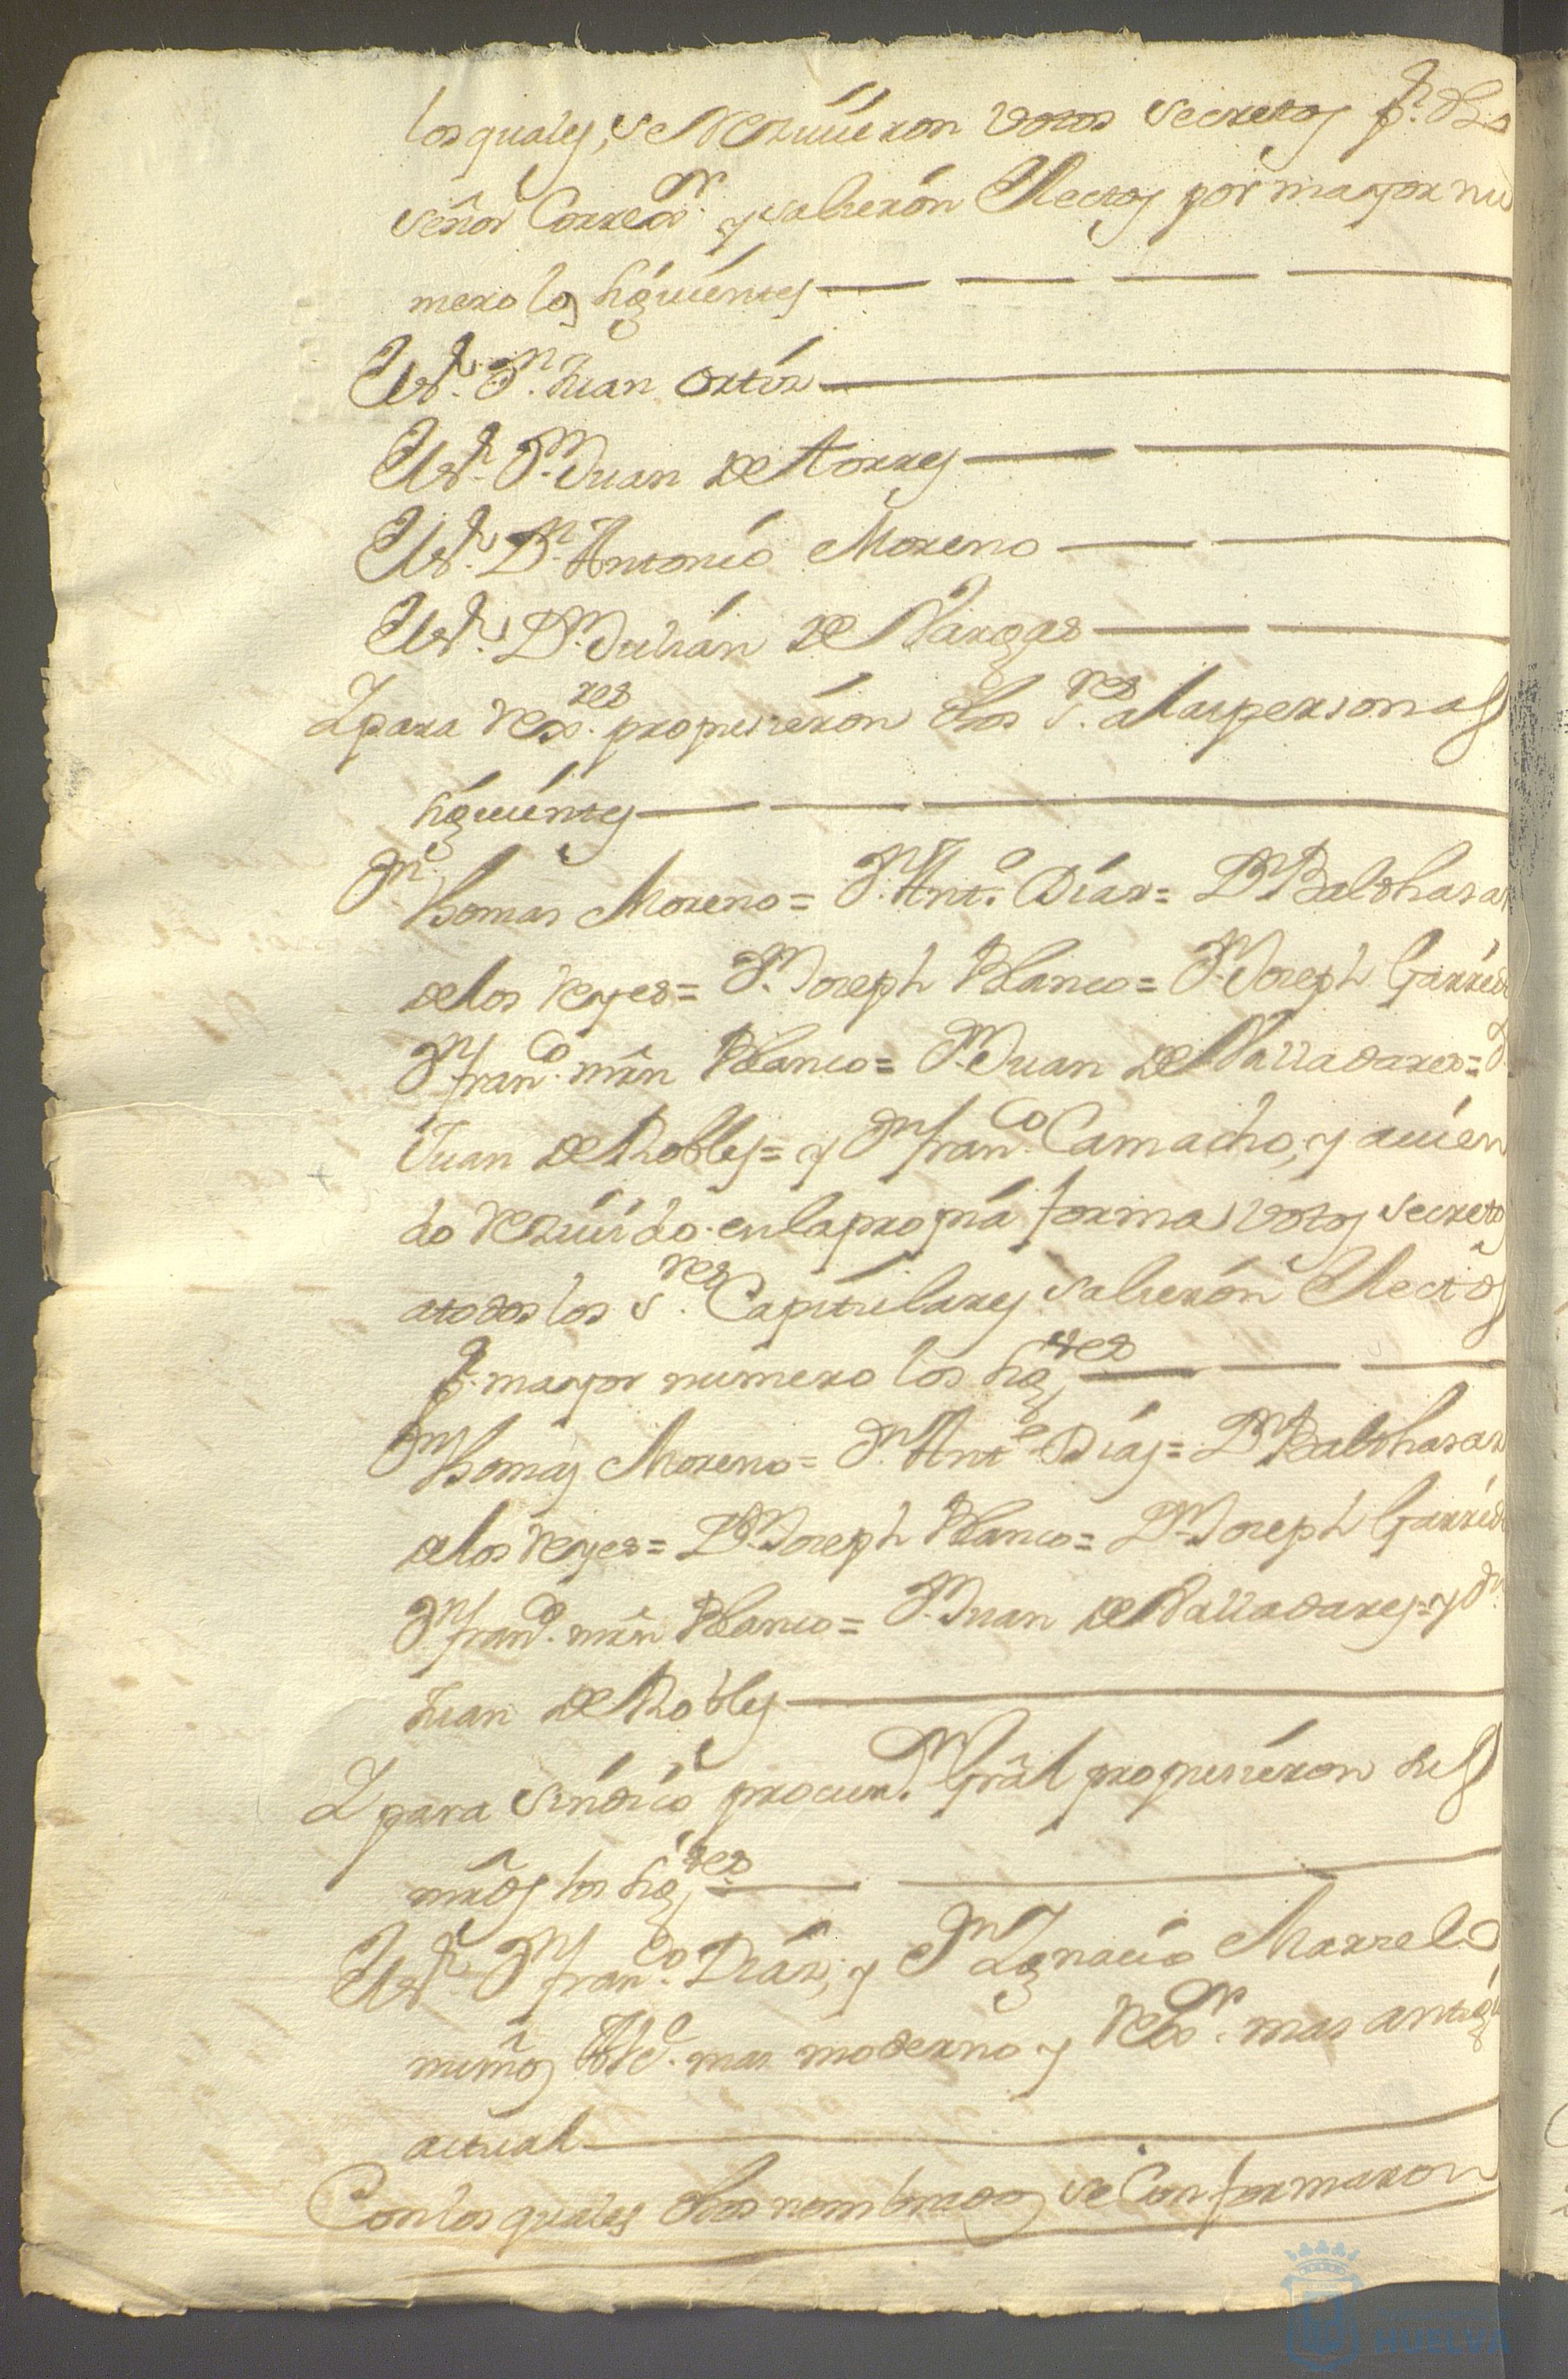 los quales, se Reziuieron Votos Secretos p.r dho
Señor Correx.or y salieron Electos por mayor nu
mero los siguientes
El S.r D.n Juan Ortiz
El S.r D.n Juan de Torres
El S.r D.n Antonio Moreno
El S.r D.n Julián de Vargas
Y para Rex.res propusieron dhos S.res a las personas
siguientes
D.n Thomas Moreno = D.n Ant.o Díaz = D.n Balthasar
de los Reyes = D.n Joseph Blanco = D.n Joseph Garrido
D.n Fran.co mrn Blanco = D.n Juan de Valladares = D.n
Juan de Robles = y D.n Fran.co Camacho, y auien
do Reziuido en la propia forma Votos secretos
a todos los S.res Capitulares salieron Electos
p.r mayor numero los sig.tes
D.n Thomas Moreno = D.n Ant.o Díaz = D.n Balthasar
de los Reyes = D.n Joseph Blanco = D.n Joseph Garrido
D.n Fran.co mrn Blanco = D.n Juan de Valladares = y D.n
Juan de Robles
Y para Síndico procur.or Gral propusieron sus
mrds los sig.tes
El S.r D.n Fran.co Díaz, y D.n Ygnacio Marrelo
mimos mas moderno y Rex.or mas antigu
actual
Con los quales dhos nombrados se Conformaron
HUELVA